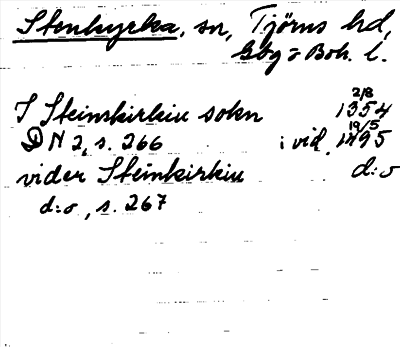 Stenkyrka, sn, Tjörns hd,
Gbg o Boh. l.
I Steinskirkiu sokn 2/8 1354
DN 2, s. 266 i vid. 19/5 1495
vider Steinkirkiu d:o
d:o, s. 267